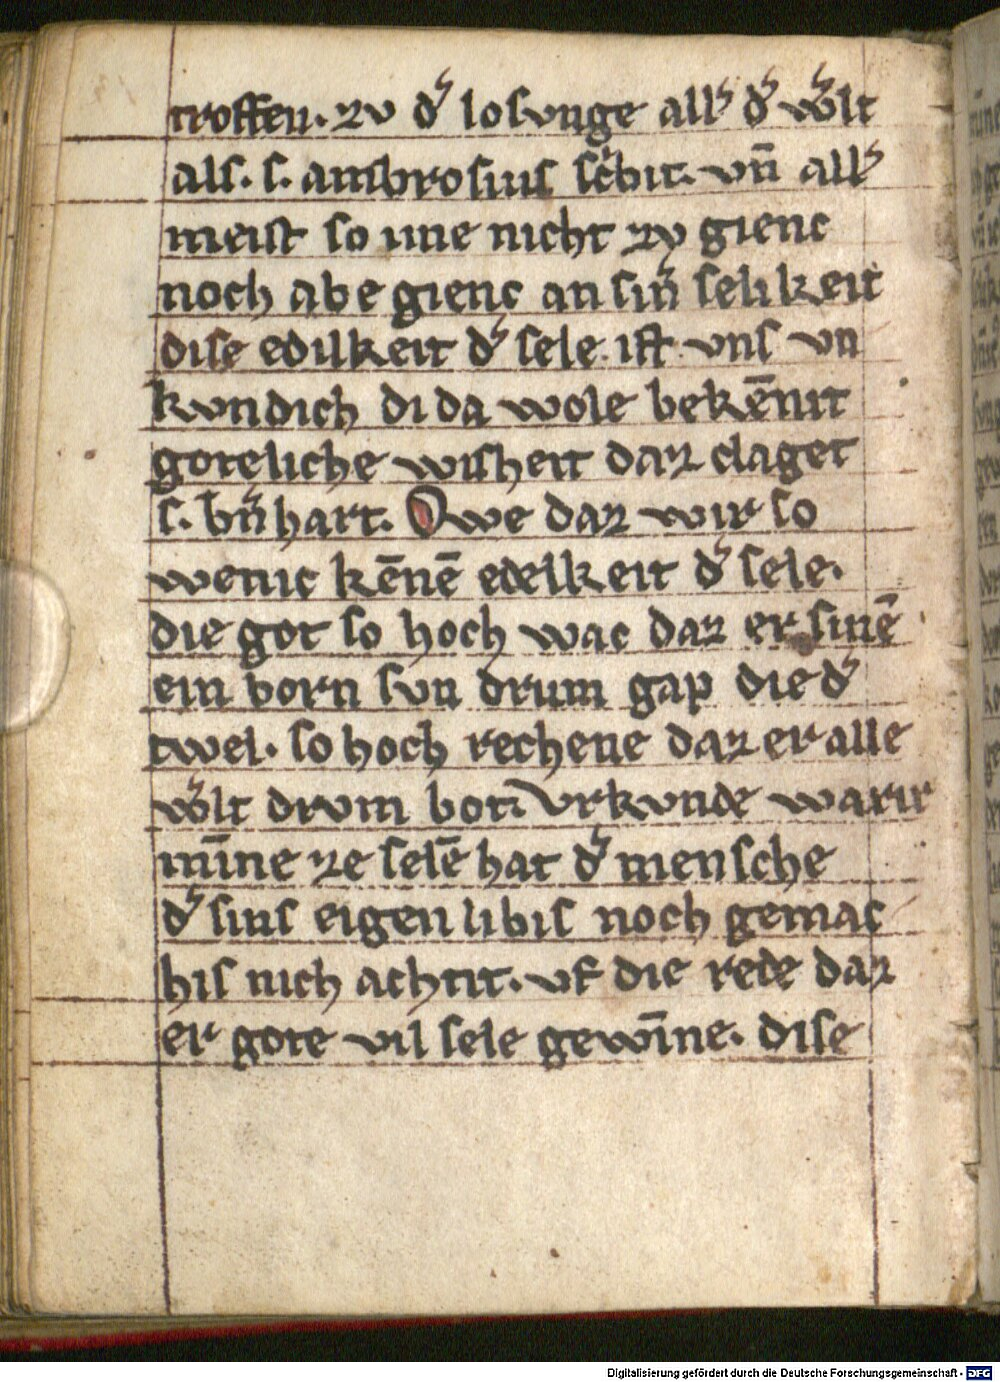 troffen. zv d͛ losunge all͛ d͛ w͛lt
als. s. ambrosius sc͛bit. vn̄ all͛
meist so ime nicht zv gienc
noch abe gienc an sin͛ selikeit
dise edilkeit d͛ sele. ist vns vn
kvndich di da wole bekēnit
goteliche wisheit daz claget
s. bn͛hart. Owe daz wir so
wenic kēnē edelkeit d͛ sele.
die got so hoch wac daz er sinē
ein born svn drum gap die d͛
twel. so hoch rechene daz er alle
w͛lt drvm bot. Vrkvnde warir
mīne ze selē hat d͛ mensche
d͛ sins eigen libis noch gemac
his nich achtit. vf die rede daz
er gote vil sele gewīne. dise
Digitalisierung gefördert durch die Deutsche Forschungsgemeinschaft - DFG